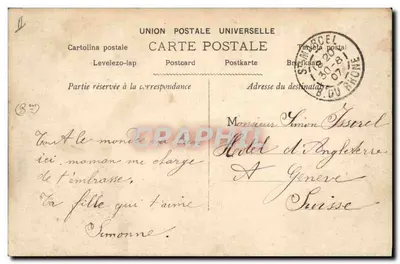 11
UNION POSTALE UNIVERSELLE
Cartolina postale CARTE POSTALE
Levelezo-lap Postcard Postkarte
Partie réservée à la correspondance Adresse du destinataire
ST MARCEL
20
30-8
07
B. DU RHONE
Tout le monde va bien
ici, maman me charge
de t'embrasse.
Ta fille qui t'aime
Simonne.
Monsieur Simon Isserel
Hôtel d'Angleterre
A Genève
Suisse